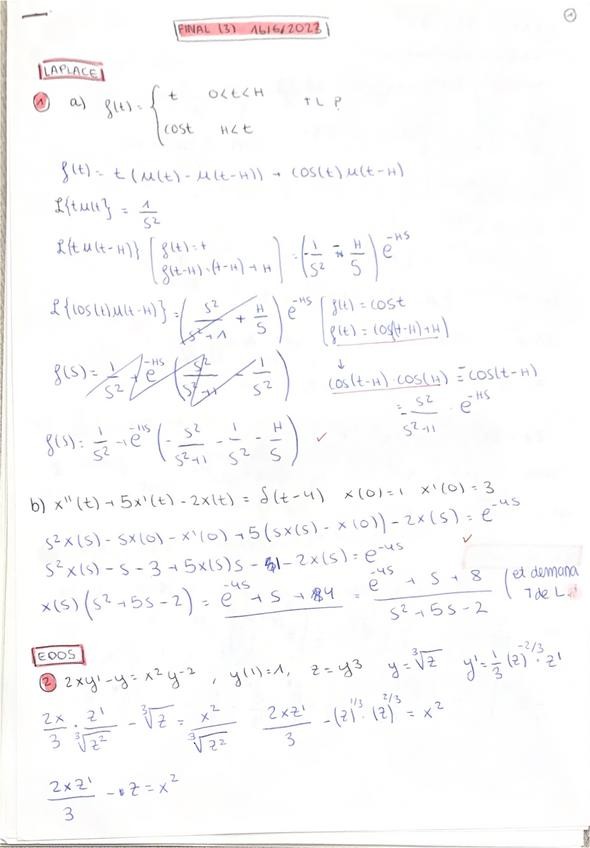 FINAL (3) 16/6/2023
1
LAPLACE
1 a) f(t) = { t 0<t<π TL?
cost π<t
f(t) = t(μ(t) - μ(t-π)) + cos(t)μ(t-π)
L{tμ(t)} = 1/s²
L{tμ(t-π)} [f(t)=t f(t-π)=(t-π)+π] = (-1/s² - π/s) e^-πs
L{cos(t)μ(t-π)} = (s²/s²+1 + π/s) e^-πs [f(t) = cost f(t) = cos(t-π)+π)]
f(s) = 1/s² + e^-πs (s²/s²+1 - 1/s²) ↓ cos(t-π)·cos(π) = -cos(t-π)
= s²/s²+1 · e^-πs
f(s) = 1/s² + e^-πs (-s²/s²+1 - 1/s² - π/s) ✓
b) x''(t) + 5x'(t) - 2x(t) = δ(t-4) x(0)=1 x'(0)=3
s²x(s) - sx(0) - x'(0) + 5(sx(s) - x(0)) - 2x(s) = e^-4s ✓
s²x(s) - s - 3 + 5x(s)s - 5 - 2x(s) = e^-4s
x(s)(s² + 5s - 2) = e^-4s + s + 8 = e^-4s + s + 8 / s² + 5s - 2 (et demana T de L.
EDOS
2 2xy' - y = x²y^-2, y(1)=1, z = y3 y = ∛z y' = 1/3 (z)^-2/3 · z'
2x/3 · z'/∛z² - ∛z = x²/∛z² 2xz'/3 - (z)^1/3 · (z)^2/3 = x²
2xz'/3 - z = x²